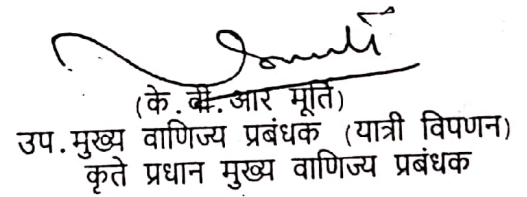 (के.वी.आर मूर्ति)
उप.मुख्य वाणिज्य प्रबंधक (यात्री विपणन)
कृते प्रधान मुख्य वाणिज्य प्रबंधक